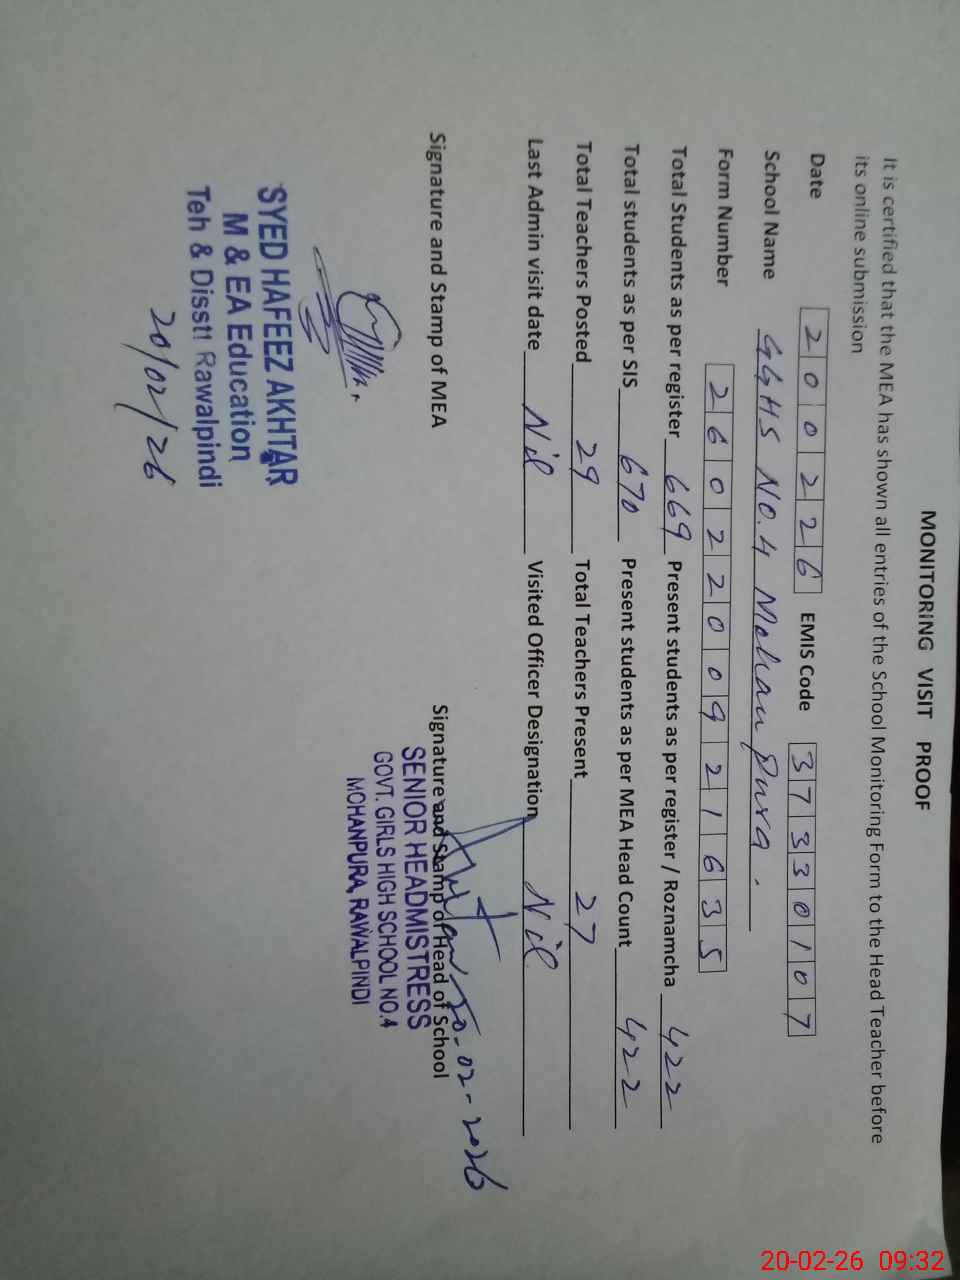 MONITORING VISIT PROOF
It is certified that the MEA has shown all entries of the School Monitoring Form to the Head Teacher before
its online submission
Date 200226 EMIS Code 37330107
School Name GGHS NO.4 Mohan Pura.
Form Number 260220092 1635
Total Students as per register 669 Present students as per register / Roznamcha 422
Total students as per SIS 670 Present students as per MEA Head Count 422
Total Teachers Posted 29 Total Teachers Present 27
Last Admin visit date Nil Visited Officer Designation Nil
Signature and Stamp of MEA Signature and Stamp of Head of School
20-02-2026
SENIOR HEADMISTRESS
GOVT. GIRLS HIGH SCHOOL NO.4
MOHANPURA, RAWALPINDI
SYED HAFEEZ AKHTAR
M & EA Education
Teh & Disstt Rawalpindi
20/02/26
20-02-26 09:32